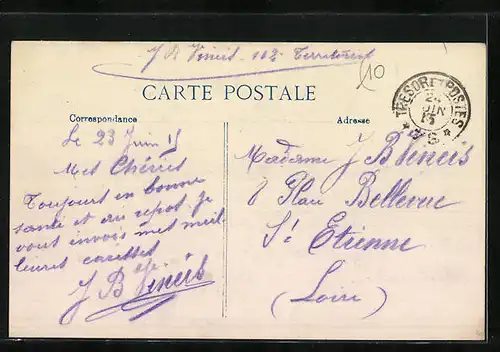 J B 102e Territorial
10
CARTE POSTALE
TRESOR ET POSTES
24
JUIN
15
Correspondance
Adresse
Le 23 Juin 15
Mes Chéries
Toujours en bonne
santé et au repot. Je
vous envois mes meil-
leures caresses
J B
Madame J B
8 Place Bellevue
St Etienne
(Loire)